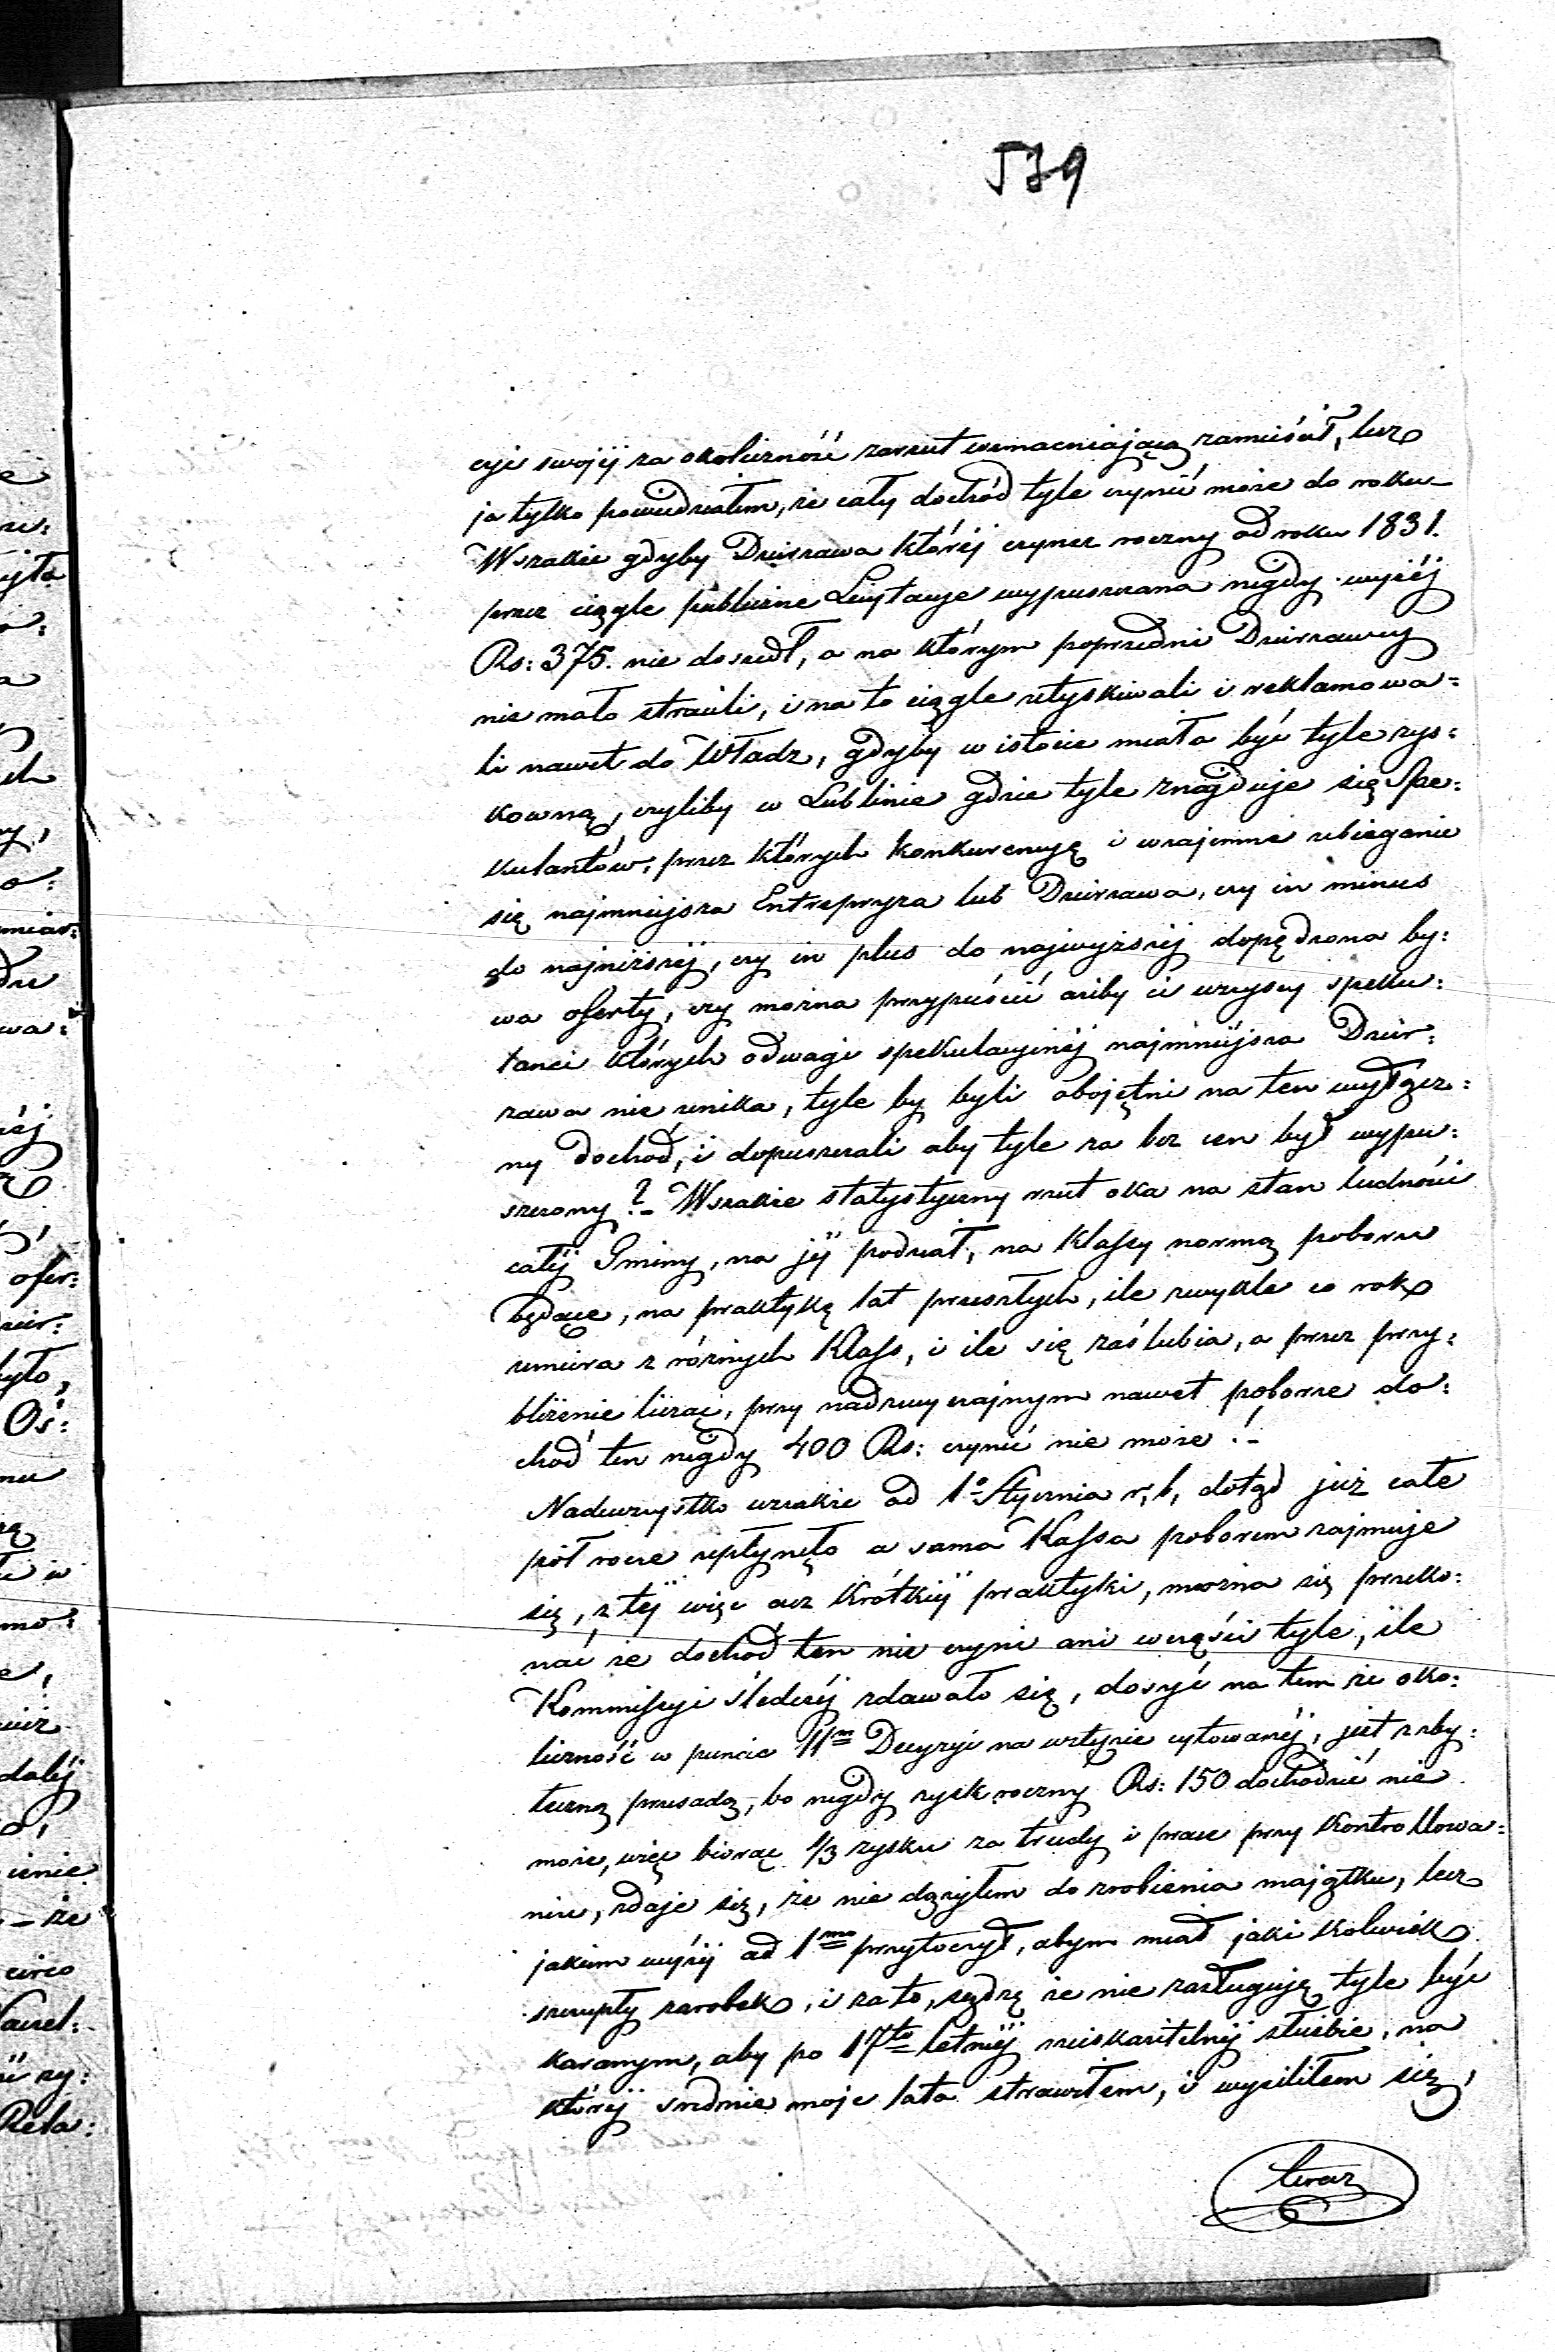 579
cyi swojéj za okoliczność zarzut wzmacniającą zamieścił, lecz
ja tylko powiedziałem, że cały dochód tyle czynić może do roku
Wszakże gdyby Dzierżawa któréj czynsz roczny od roku 1831.
przez ciągle publiczne Licytacye wypuszczana nigdy wyżéj
Rs: 375. nie doszedł, a na którym poprzedni Dzierżawcy
nie mało stracili, i na to ciągle utyskiwali i reklamowa=
li nawet do Władz, gdyby w istocie miała być tyle zys=
kowną, czyliby w Lublinie gdzie tyle znajduje się Spe=
kulantów, przez których konkurencyę i wzajemne ubieganie
się najmniejsza Entrepryza lub Dzierżawa, czy in minus
do najniższéj, czy in plus do najwyższéj dopędzona by=
wa oferty, czy można przypuścić ażeby ci wszyscy speku=
lanci których odwagi spekulacyjnéj najmniejsza Dzier=
żawa nie unika, tyle by byli obojętni na ten wyłącz=
ny dochód, i dopuszczali aby tyle za bez cen był wypu=
szczony? – Wszakże statystyczny rzut oka na stan ludności
całéj Gminy, na jéj podział, na Klassy normą poboru
będące, na praktykę lat przeszłych, ile zwykle co rok
umiera z różnych Klass, i ile się zaślubia, a przez przy=
bliżenie licząc, przy nadzwyczajnym nawet poborze do=
chód ten nigdy 400 Rs: czynić nie może! –
Nadewszystko wszakże od 1° Stycznia r, b, dotąd już całe
pół rocze upłynęło a sama Kassa poborem zajmuje
się, z téj więc acz krótkiéj praktyki, można się przeko=
nać że dochód ten nie czyni ani w części tyle, ile
Kommissyi śledczéj zdawało się, dosyć na tem że oko=
liczność w puncie 11m Decyzyi na wstępie cytowanéj, jest zby=
teczną przesadą, bo nigdy zysk roczny Rs: 150 dochodzić nie
może, więc biorąc 1/3 zysku za trudy i prace przy kontrollowa=
niu, zdaje się, że nie dążyłem do zrobienia majątku, lecz
jakiem wyżéj ad 1mo przytoczył, abym miał jaki kolwiek
szczupły zarobek, i za to, sądzę że nie zasługuję tyle być
karanym, aby po 17to letniéj nieskazitelnéj służbie, na
któréj średnie moje lata strawiłem, i wysiliłem się,
teraz